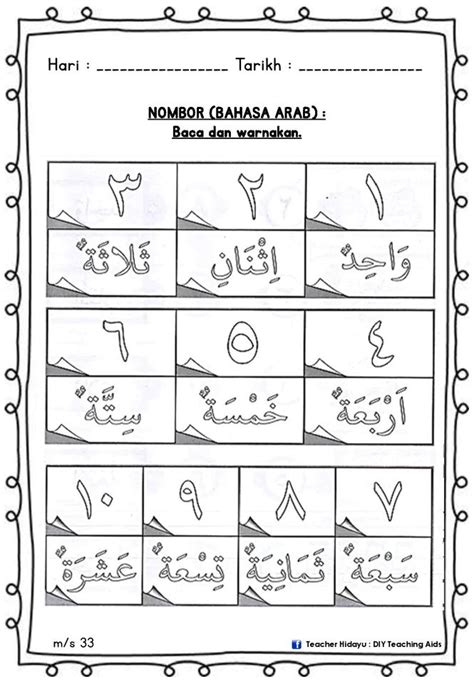 Hari : ________________ Tarikh : ________________
NOMBOR (BAHASA ARAB) :
Baca dan warnakan.
١ ٢ ٣
وَاحِدٌ اِثْنَانِ ثَلاثَةٌ
٤ ٥ ٦
اَرْبَعَةٌ خَمْسَةٌ سِتَّةٌ
٧ ٨ ٩ ١٠
سَبْعَةٌ ثَمَانِيَةٌ تِسْعَةٌ عَشَرَةٌ
m/s 33
f Teacher Hidayu : DIY Teaching Aids